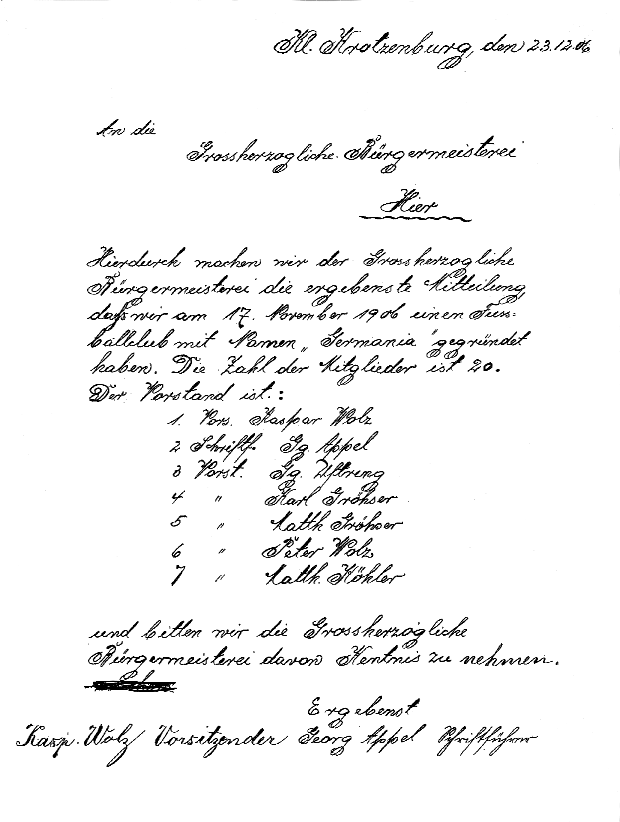 Kl. Krotzenburg, den 23.12.06
An die
Grossherzogliche Bürgermeisterei
Hier
Hierdurch machen wir der Grossherzogliche
Bürgermeisterei die ergebenste Mitteilung,
daß wir am 17. November 1906 einen Fuss-
ballclub mit Namen „Germania" gegründet
haben. Die Zahl der Mitglieder ist 20.
Der Vorstand ist.:
1. Vors. Kaspar Wolz
2 Schriftf. Gg. Appel
3 Vorst. Gg. Uftring
4 " Karl Gröhser
5 " Matth Gröhser
6 " Peter Wolz
7 " Matth. Köhler
und bitten wir die Grossherzogliche
Bürgermeisterei davon Kentnis zu nehmen.
Ergebenst
Kasp. Wolz Vorsitzender Georg Appel Schriftführer